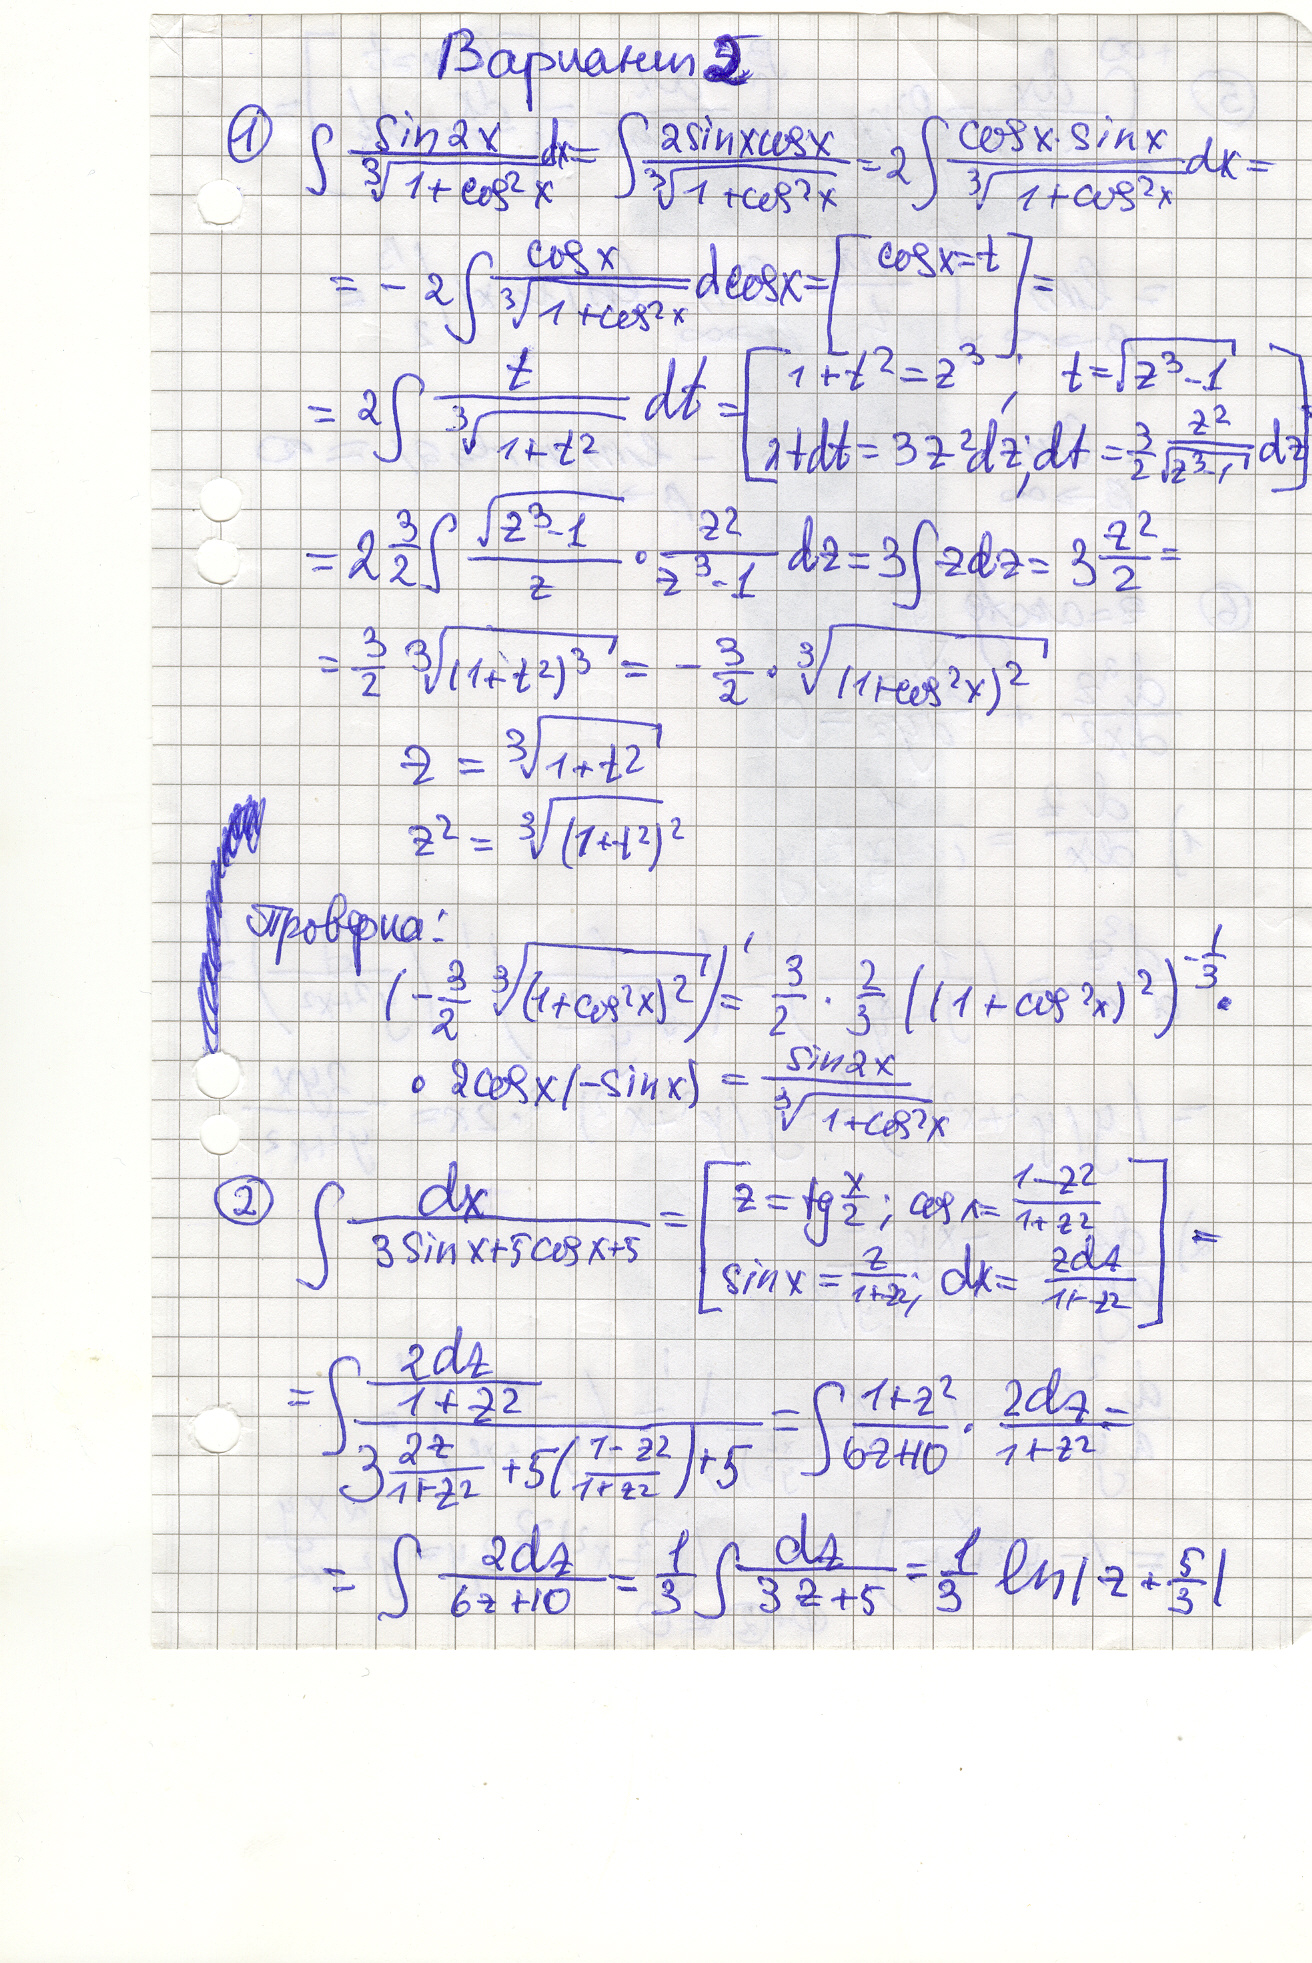 Вариант 2
① ∫ sin2x / ∛(1+cos²x) dx = ∫ 2sinxcosx / ∛(1+cos²x) = 2∫ cosx·sinx / ∛(1+cos²x) dx =
= -2∫ cosx / ∛(1+cos²x) dcosx = [cosx=t] =
= 2∫ t / ∛(1+t²) dt = [1+t²=z³; t=√(z³-1)
2tdt=3z²dz; dt=3/2 z²/√(z³-1) dz]
= 2 3/2 ∫ √(z³-1) / z · z² / z³-1 dz = 3∫zdz = 3 z²/2 =
= 3/2 ∛(1+t²)³ = -3/2 · ∛(1+cos²x)²
z = ∛(1+t²)
z² = ∛(1+t²)²
Проверка:
(-3/2 ∛(1+cos²x)²)' = 3/2 · 2/3 ((1+cos²x)²)^(-1/3) ·
· 2cosx(-sinx) = sin2x / ∛(1+cos²x)
② ∫ dx / 3sinx+5cosx+5 = [z=tg x/2; cosx= 1-z² / 1+z²
sinx = z / 1+z²; dx= 2dz / 1+z²] =
= ∫ (2dz / 1+z²) / (3 2z/1+z² +5(1-z²/1+z²)+5) = ∫ 1+z² / 6z+10 · 2dz / 1+z² =
= ∫ 2dz / 6z+10 = 1/3 ∫ dz / 3z+5 = 1/3 ln|z+5/3|